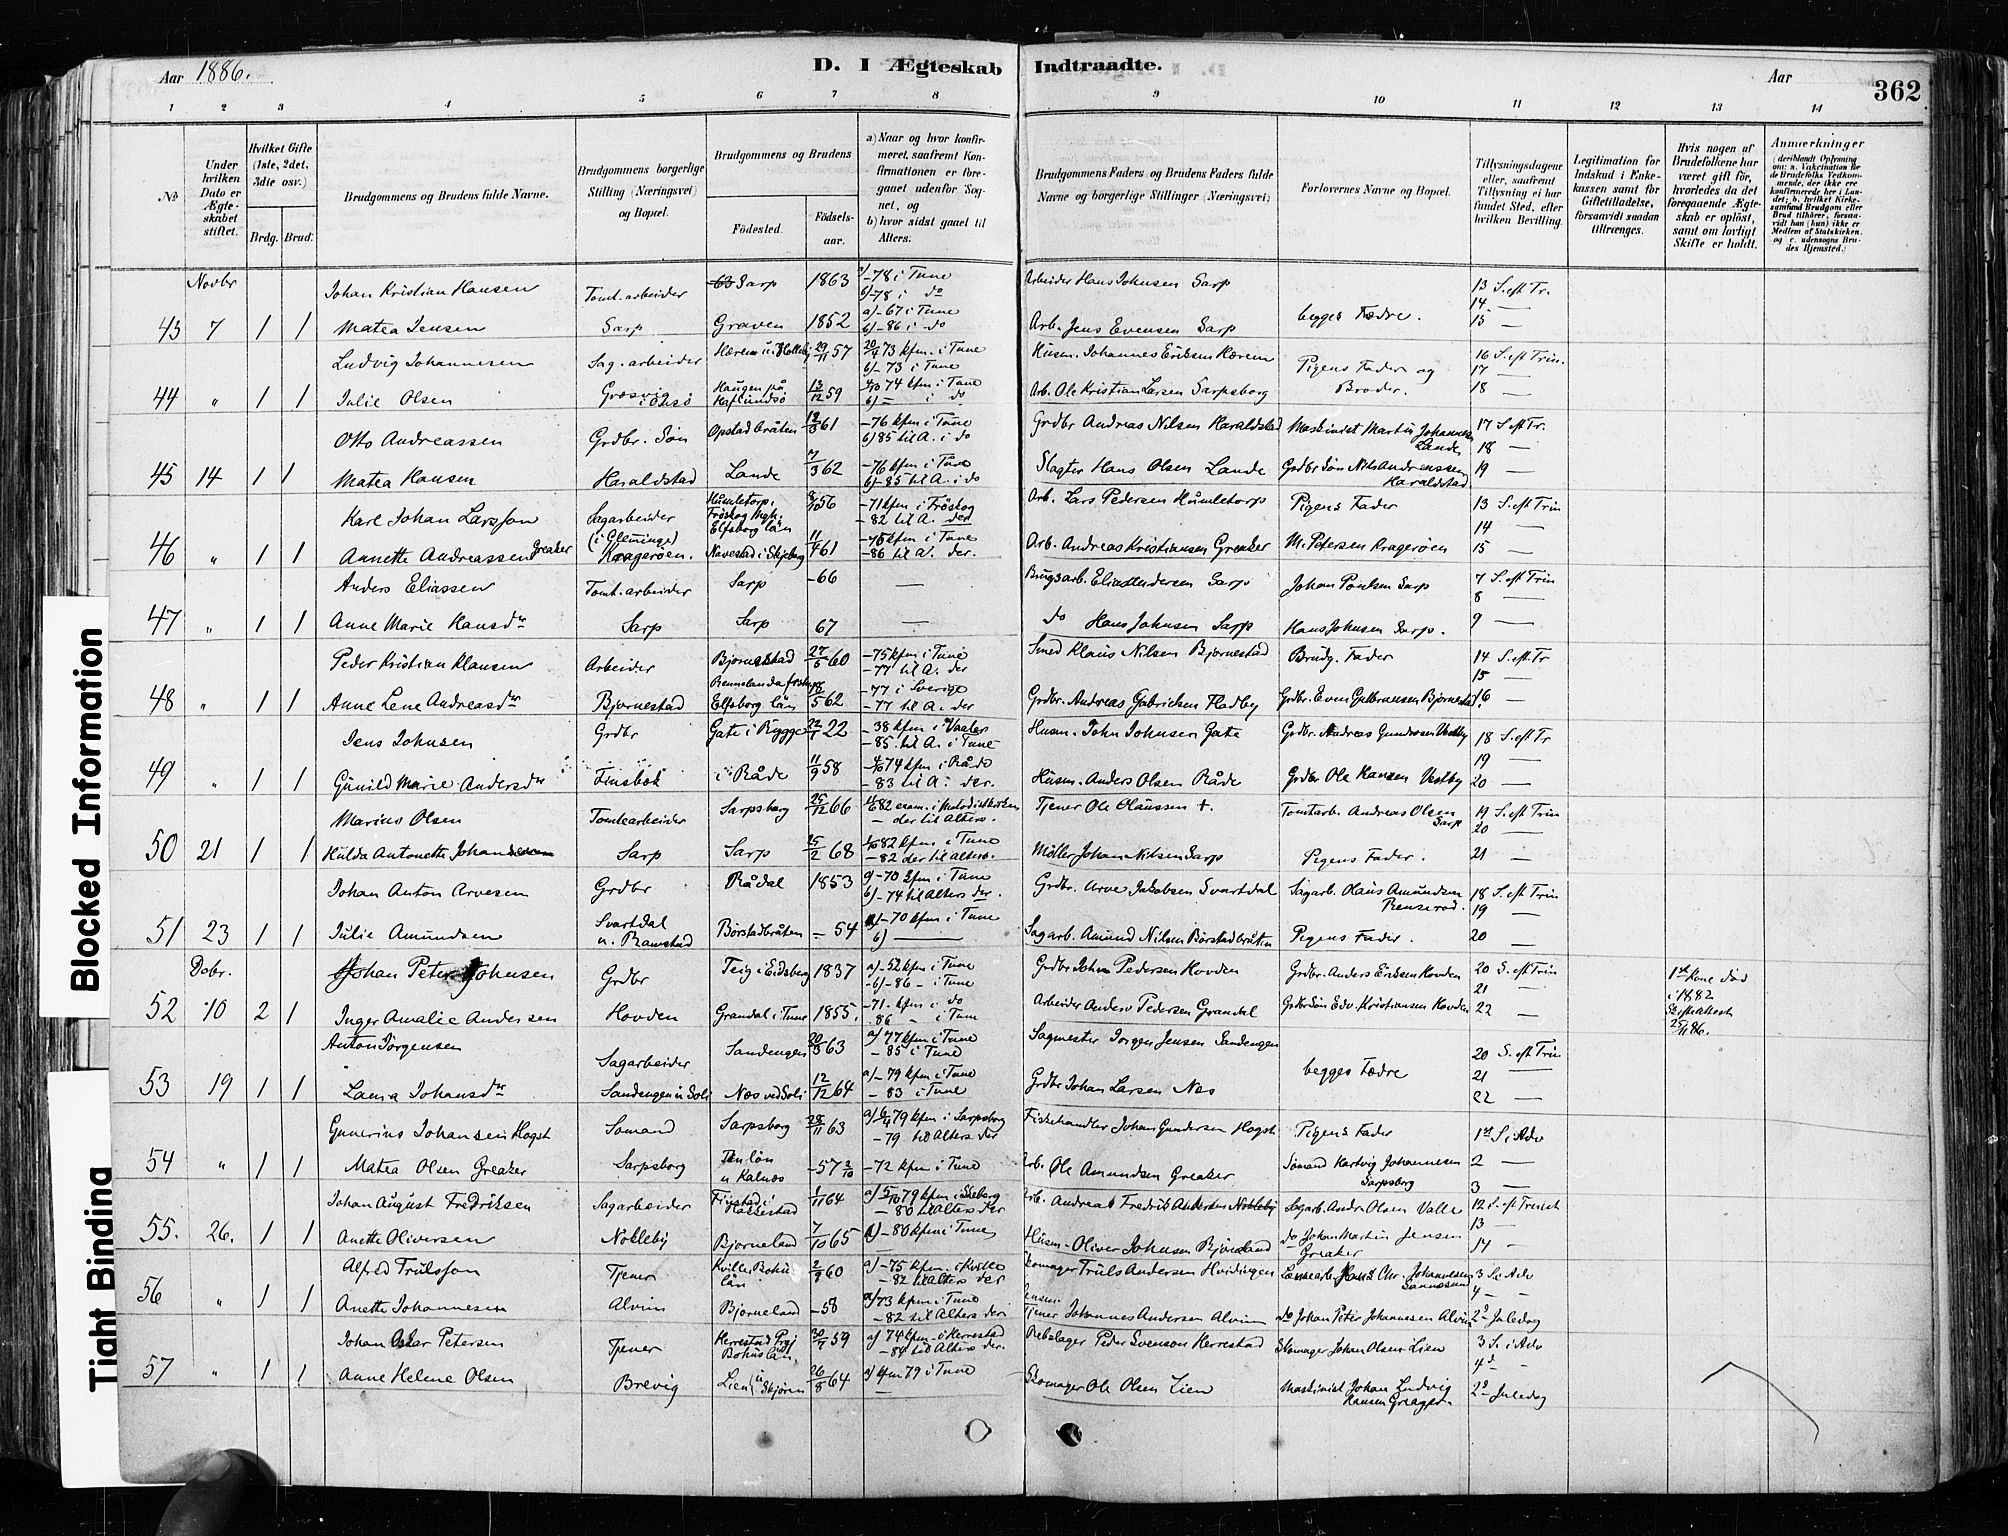 Aar 1886.
D. I Ægteskab Indtraadte.
Aar
362
1 2 3 4 5 6 7 8 9 10 11 12 13 14
No
Under hvilken Dato er Ægteskabet stiftet.
Hvilket Gifte (1ste, 2det, 3die osv.)
Brdg. Brud.
Brudgommens og Brudens fulde Navne.
Brudgommens borgerlige Stilling (Næringsvei) og Bopæl.
Brudgommens og Brudens
Fødested.
Fødselsaar.
a) Naar og hvor konfirmeret, saafremt Konfirmationen er foregaaet udenfor Sognet, og
b) hvor sidst gaaet til Alters.
Brudgommens Faders og Brudens Faders fulde Navne og borgerlige Stillinger (Næringsvei)
Forlovernes Navne og Bopæl.
Tillysningsdagene eller, saafremt Tillysning ei har fundet Sted, efter hvilken Bevilling.
Legitimation for Indskud i Enkekassen samt for Giftetilladelse, forsaavidt saadan tiltrænges.
Hvis nogen af Brudefolkene har været gift før, hvorledes da det foregaaende Ægteskab er opløst, samt om lovligt Skifte er holdt.
Anmærkninger
Novbr
Johan Kristian Hansen Tomt.arbeider Sarp 1863 a/ -78 i Tune b/ -78 i do Arbeider Hans Johnsen Sarp 13 S. eft Tr.
43 7 1 1 Matea Jensen Sarp Graven 1852 a) -67 i Tune b) -86 i do Arb. Jens Evensen Sarp begges Fædre. 14 — 15 —
Ludvig Johannesen Sag.arbeider 29/11 57 20/4 73 kfm. i Tune b) -73 i Tune Husm. Johannes Eriksen Hærem Pigens Fader og 16 S. eft Trin. 17 —
44 " 1 1 Julie Olsen 13/12 59 74 kfm i Tune Arb. Ole Kristian Larsen Sarpsborg Broder. 18 —
Otto Andreassen Grdbr. Søn Opstadbråten 61 -76 kfm i Tune b) 85 til A. i do Grdbr Andreas Nilsen Haraldstad Maskinist Martin Johannesen Lande 17 S. eft Tr. 18 —
45 14 1 1 Matea Hansen Haraldstad Lande 7/3 62 -76 kfm i Tune b) -85 til A. i do Slagter Hans Olsen Lande Grdbr Søn Nils Andreassen Haraldstad 19 —
Karl Johan Larsson Sagarbeider Humletorp. Elfsborg län 56 -71 kfm i Fröskog -82 til A. der Arb. Lars Pedersen Humletorp Pigens Fader 13 S. eft Trin 14 —
46 " 1 1 Annette Andreassen Greaker Kragerøen. Navestad i Skjeberg 11/4 61 -76 kfm i Tune -86 til A. der. Arb. Andreas Kristiansen Greaker M. Petersen Kragerøen 15 —
Anders Eliassen Tomt.arbeider Sarp -66 — Brugsarb. Elias Andersen Sarp Johan Poulsen Sarp 7 S. eft Trin 8 —
47 " 1 1 Anne Marie Hansdr Sarp Sarp 67 — do Hans Johnsen Sarp Hans Johnsen Sarp. 9 —
Peder Kristian Klausen Arbeider Bjørnestad 27/5 60 -75 kfm i Tune -77 til A. der Smed Klaus Nilsen Bjørnestad Brudg. Fader 14 S. eft. Tr 15 —
48 " 1 1 Anne Lene Andreasdr Bjørnestad Elfsborg län 62 -77 i Sverige -77 til A. der Grdbr. Andreas Gabrielsen Hadby Grdbr. Even Gulbransen Bjørnestad. 16 —
Jens Johnsen Grdbr Gate i Rygge 22/1 22 -38 kfm i Vaaler -85 til A. i Tune Husm. John Johnsen Gate Grdbr. Andreas Gundersen Vestby 18 S. eft Tr 19 —
49 " 1 1 Gunild Marie Andersdr Finsbek i Råde 11/9 58 74 kfm i Råde -83 til A. der. Husm. Anders Olsen Råde Grdbr Ole Hansen Vestby 20 —
Marius Olsen Tomtearbeider Sarpsborg 25/12 66 82 exam. i Metodistkirken — der til Alters. Tjener Ole Olaussen +. Tomtarb. Andreas Olsen Sarp 19 S. eft Trin 20 —
50 21 1 1 Hulda Antonette Johansen Sarp Sarp 25/2 68 82 kfm i Tune -82 der til alters. Møller Johan Nilsen Sarp Pigens Fader. 21 —
Johan Anton Arvesen Grdbr Rådal 1853 a) -70 kfm i Tune b) -74 til Alters der. Grdbr. Arve Jakobsen Svartdal Sagarb. Olaus Amundsen 18 S. eft Trin 19 —
51 23 1 1 Julie Amundsen Svartdal u. Ramstad Børstadbråten - 54 a) -70 kfm i Tune b) — Sagarb. Amund Nilsen Børstadbråten Pigens Fader. 20 —
Dcbr.
Johan Peter Johnsen Grdbr Teig i Eidsberg 1837 a) -52 kfm i Tune b) -86 - i Tune Grdbr Johan Pedersen Hovden Grdbr. Anders Eriksen Hovden 20 S. eft Trin 21 — 1ste Kone død i 1882
52 10 2 1 Inger Amalie Andersen Hovden Grandal i Tune 1855. -71. kfm i do 86 " i Tune Arbeider Anders Pedersen Grandal Edv. Kristiansen Hovden 22 — Skifteattest
Anton Jørgensen Sagarbeider Sandengen 63 a) 77 kfm i Tune -85 i Tune Sagmester Jørgen Jensen Sandengen 20 S. eft Trin
53 19 1 1 Laura Johansdr Sandengen u Soli Næs ved Soli 12/12 64 a) -79 kfm i Tune - 83 i Tune Grdbr Johan Larsen Næs begges Fædre 21 — 22 —
Gunerius Johansen Høgst Sømand Sarpsborg 28/11 63 a) 79 kfm i Sarpsborg -79 til Alters der Fiskehandler Johan Gundersen Høgst Pigens Fader 1st S. i Adv
54 " 1 1 Matea Olsen Greaker Sarpsborg u Kalnæs -57 -72 kfm i Tune Arb. Ole Amundsen Greaker Sømand Hartvig Johannesen Sarpsborg 2 — 3 —
Johan August Fredriksen Sagarbeider 64 a) 79 kfm i Skeberg - 80 til Alters der Arb. Andreas Fredrik Andersen Nokleby Sagarb. Andr. Olsen Valle 12 S. eft Trinit
55. 26. 1 1 Anette Oliversen Nokleby Bjørneland 7/10 65 -80 kfm i Tune Husm. Oliver Johnsen Bjørneland do Johan Martin Jensen Greaker 13 — 14 "
Alfred Trulsson Tjener Kville Bohus län 2/9 60 a) -75 kfm. i Kville - 82 til Alters der Skomager Truls Andersen Hvidingen Chr. Johannesen Sannesund 3 S. i Adv
56 " 1 1 Anette Johannesen Alvim Bjørneland -58 73 kfm i Tune - 82 til Alters der Tjener Johannes Andersen Alvim do Johan Peter Johannesen Alvim 4 - 2d Juledag
Johan Oskar Petersen Tjener Herrestad Bohus län. 59 a) 74 kfm. i Herrestad -84 til Alters der. Rebslager Peder Svenson Herrestad Skomager Johan Olsen Lien 3 S. i Adv 4d "
57 " 1 1 Anne Helene Olsen Brevig Lien i Skjøren 26/8 64 a) kfm 79 i Tune Skomager Ole Olsen Lien Maskinist Johan Ludvig Hansen Greager. 2d Juledag
Blocked Information
Tight Binding